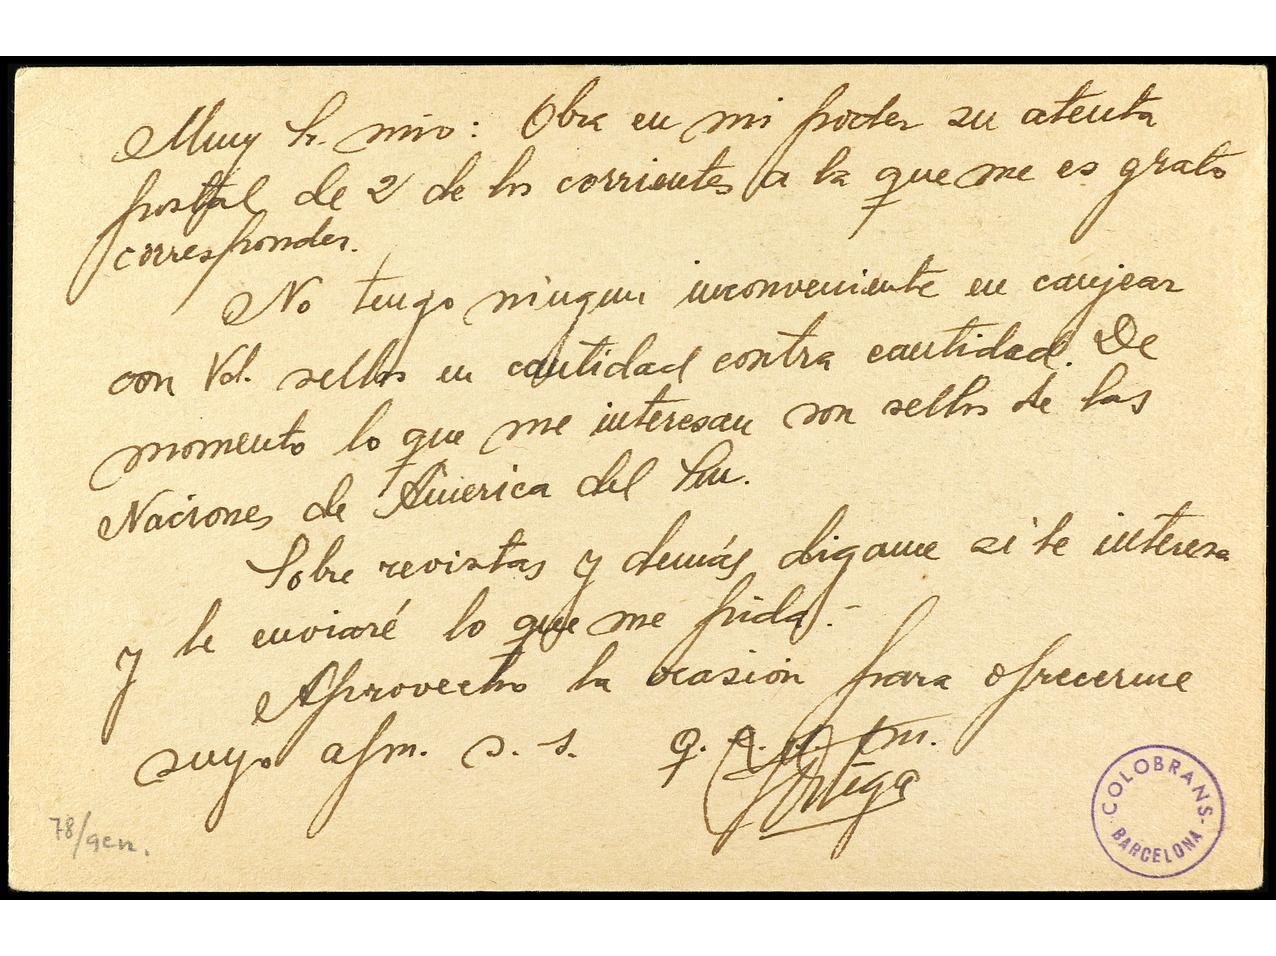 Muy Sr. mio: Obra en mi poder su atenta
postal de 2 de los corrientes a la que me es grato
corresponder.
No tengo ningun inconveniente en canjear
con Vd. sellos en cantidad contra cantidad. De
momento lo que me interesan son sellos de las
Naciones de América del Sur.
Sobre revistas y demás digame si le interesa
y le enviaré lo que me pida.-
Aprovecho la ocasión para ofrecerme
suyo afm. s. s. q. e. s. m.
Ortega
78/gen.
COLOBRANS
BARCELONA